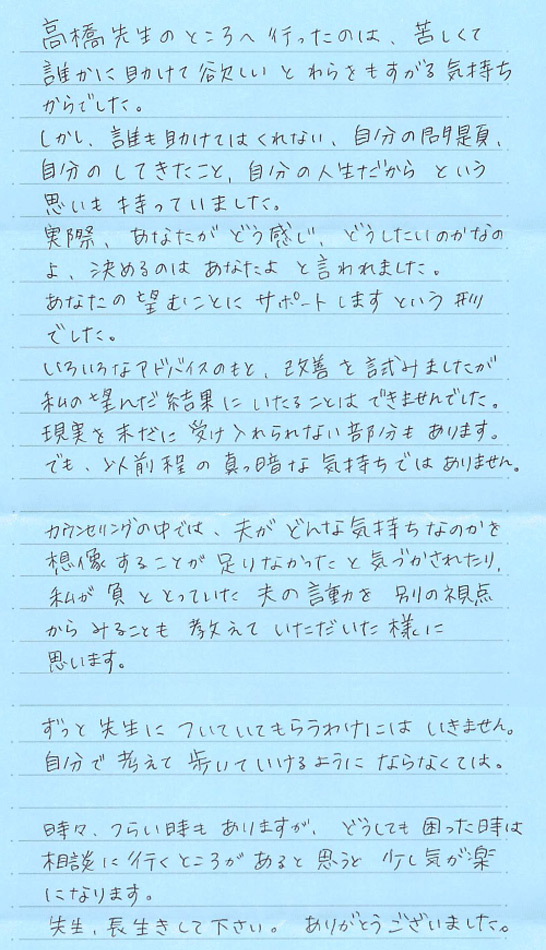 高橋先生のところへ行ったのは、苦しくて
誰かに助けて欲しいとわらをもすがる気持ち
からでした。
しかし、誰も助けてはくれない、自分の問題、
自分のしてきたこと、自分の人生だからという
思いも持っていました。
実際、あなたがどう感じ、どうしたいのかなの
よ、決めるのはあなたよと言われました。
あなたの望むことにサポートしますという形
でした。
いろいろなアドバイスのもと、改善を試みましたが
私の望んだ結果にいたることはできませんでした。
現実を未だに受け入れられない部分もあります。
でも、以前程の真っ暗な気持ちではありません。
カウンセリングの中では、夫がどんな気持ちなのかを
想像することが足りなかったと気づかされたり、
私が負ととっていた夫の言動を別の視点
からみることも教えていただいた様に
思います。
ずっと先生についていてもらうわけにはいきません。
自分で考えて歩いていけるようにならなくては。
時々、つらい時もありますが、どうしても困った時は
相談に行くところがあると思うと少し気が楽
になります。
先生、長生きして下さい。ありがとうございました。